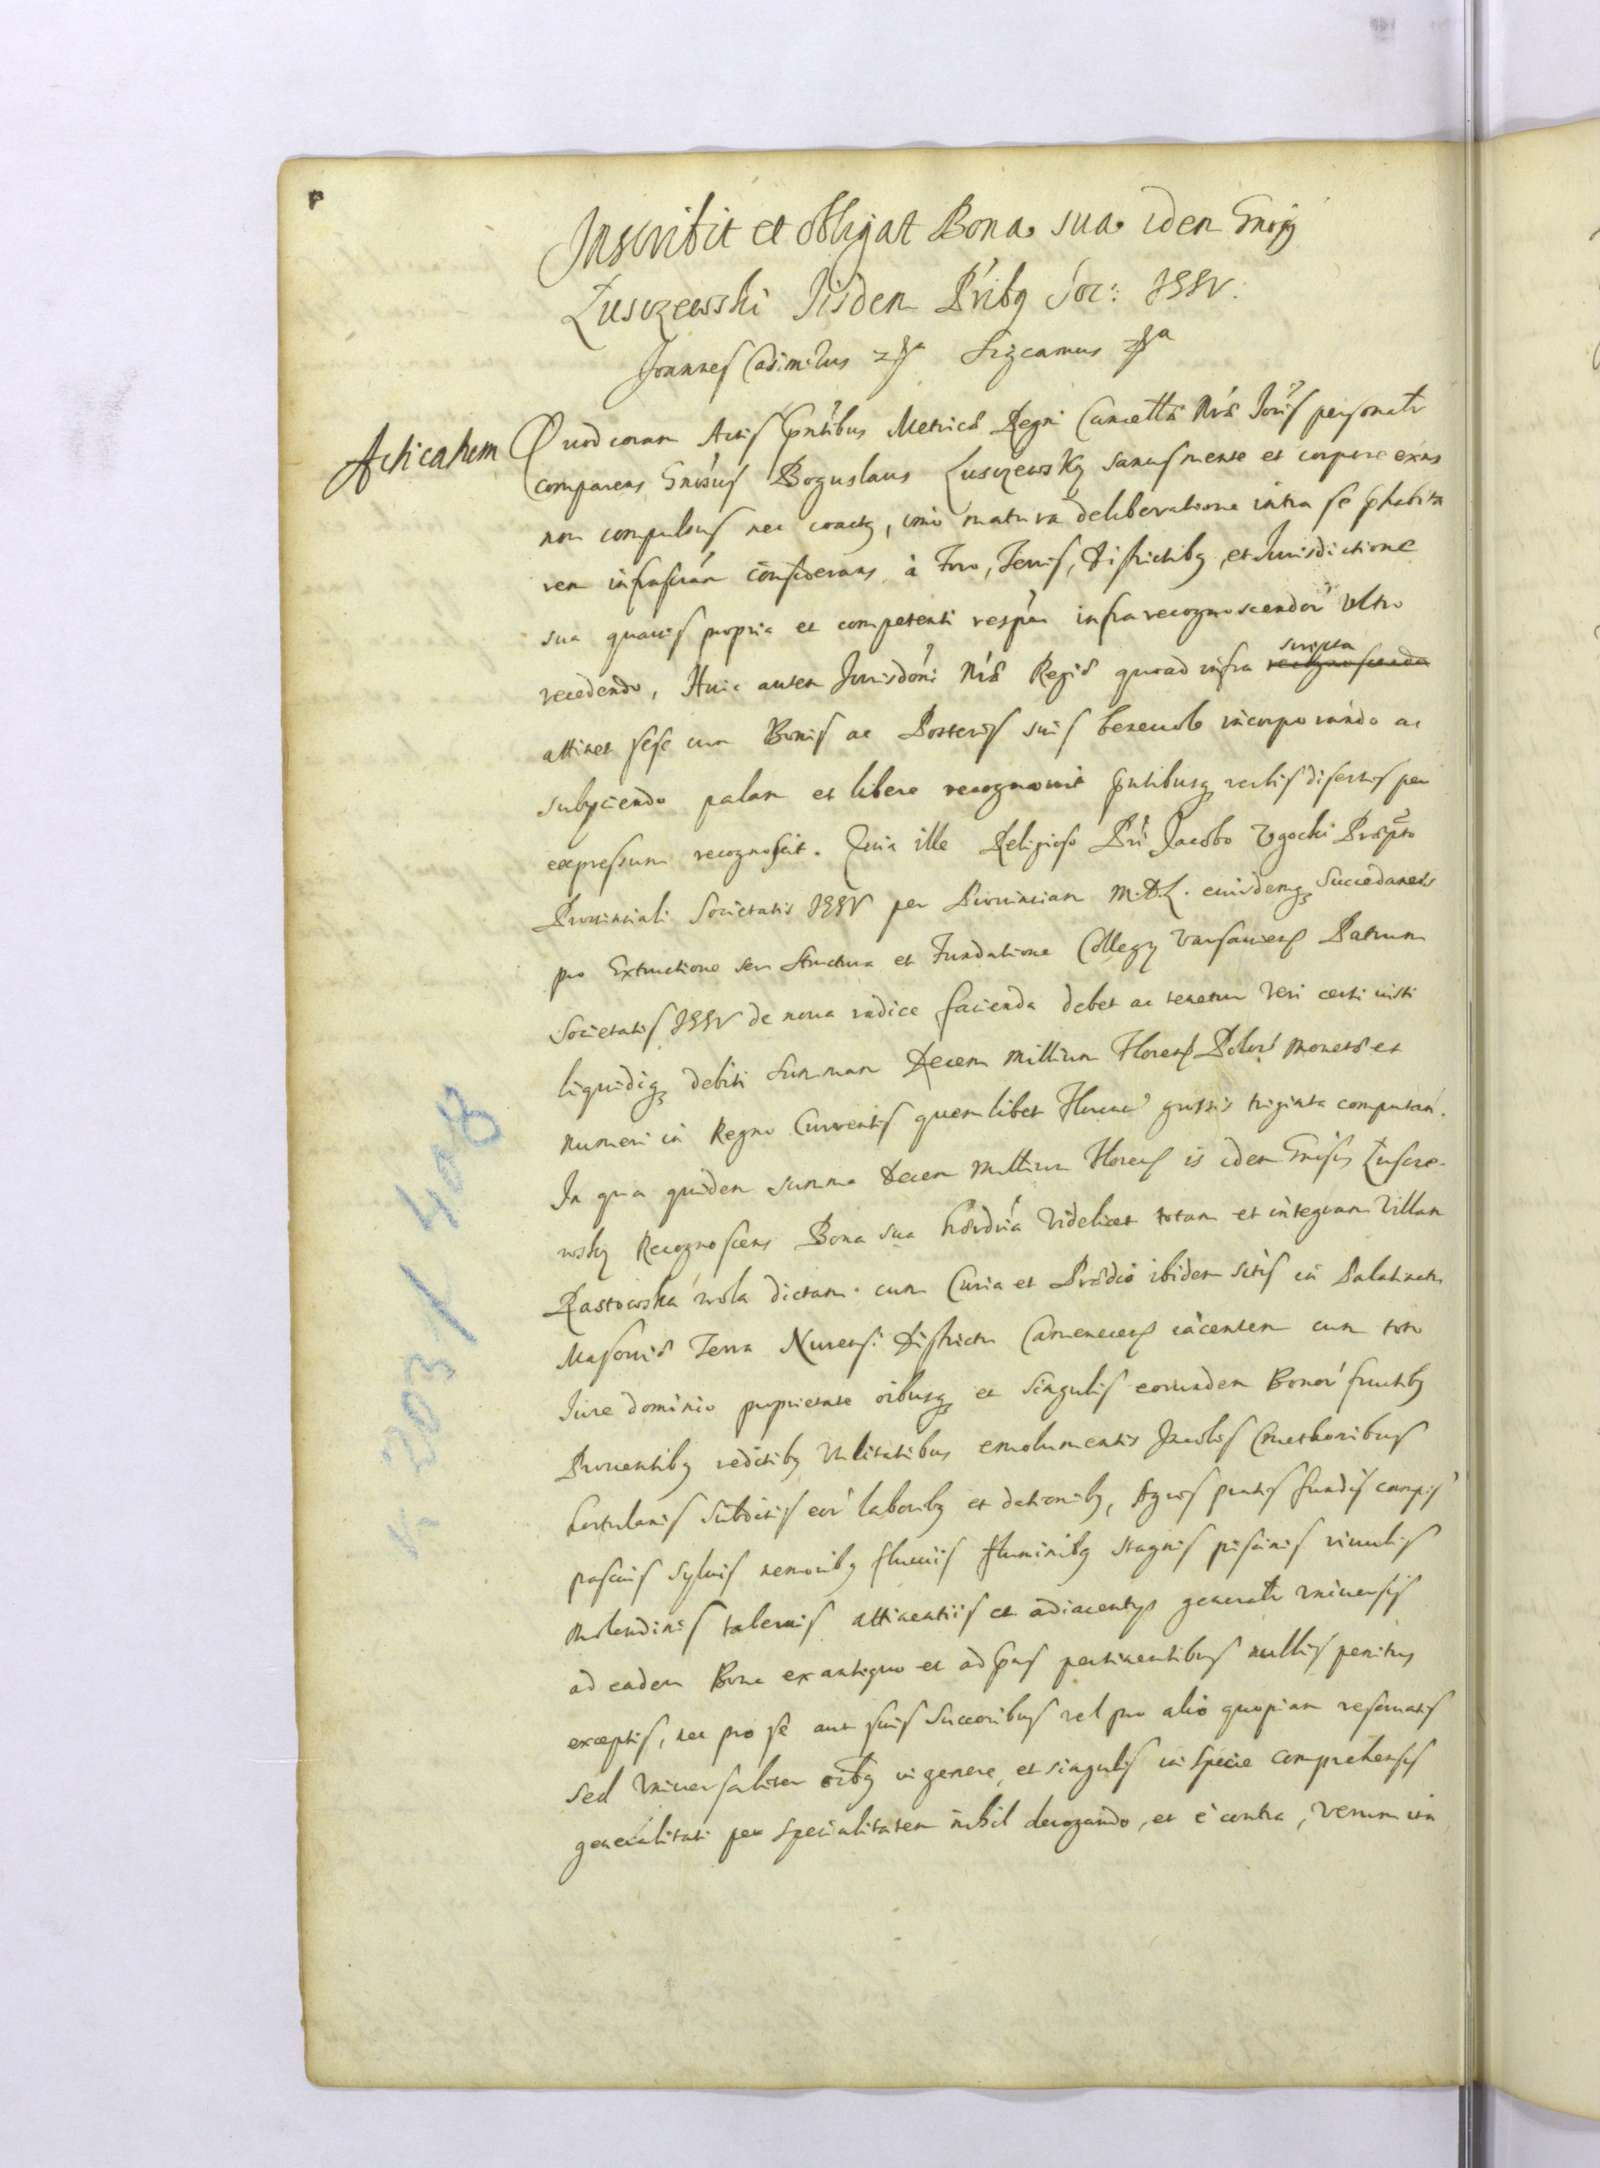 Inscribit et obligat Bona sua iden Gnosus
Łusczewski Iisdem Pribq Soc: JESV.
Joannes Casimirus &ca Significamus &ca
Acticatum
Quod coram Actis pntibus Metrices Regni Cancellriæ Nræ Ioris personaltr
comparens Gnosus Boguslaus Łusczewsky sanus mente et corpore exns
non compulsus nec coactq, imò matura deliberatione intra se phabita
rem infrascrän considerans, à Foro, Terris, Districtibq et Iurisdictione
sua quauis propria et competenti respčn infrarecognoscendor Vltro
recedendo, Huic autem Iurisdóni Nræ Regiæ quoad infra scripta recognoscenda
attinet sese cum Bonis ac Posteris suis beneuole incorporando ac
subijciendo palam et libere recognouit pntibusq verbis disertis per
expressum recognoscit. Quia ille Religioso Pri Jacobo Vgocki Præpto
Prouinciali Societatis JESV per Prouinciam M.D.L. eiusdemq Succedaneis
pro Extructione seu structura et Fundatione Collegij Varsauiens Patrum
Societatis JESV de noua radice facienda debet ac tenetur Veri certi iusti
liquidiq debiti summam Decem Millium Florens Polonr Monetæ et
numeri in Regno Currentis quemlibet Florenũ grossis triginta computań.
In qua quidem summa Decem Millium Florens is idem Gnosus Łuscze-
wsky Recognoscens Bona sua hæredria Videlicet totam et integram Villam
Rastowska wola dictam. cum Curia et Prædio ibidem sitis in Palatinatu
Masouiæ Terra Nurensi Districtu Camenecens iacentem cum toto
Iure dominio proprietate oibusq et singulis eorundem Bonor fructibq
Prouentibq reditibq Vtilitatibus emolumentis Incolis Cmethonibus
hortulanis subditis eor laboribq et dationibq, Agris pratis fundis campis
pascuis syluis nemoribq fluuiis fluminibq stagnis piscinis riuulis
Molendinis tabernis attinentiis et adiacentijs generaltr Vniuersis
ad eadem Bona exantiquo et adpns pertinentibus nullis penitus
exceptis, nec pro se aut suis Succoribus vel pro alio quopiam reseruatis
sed Vniuersaliter oibq in genere, et singulis in specie comprehensis
generalitati per specialitatem nihil derogando, et è contra, Verum ita
N 203 / 408